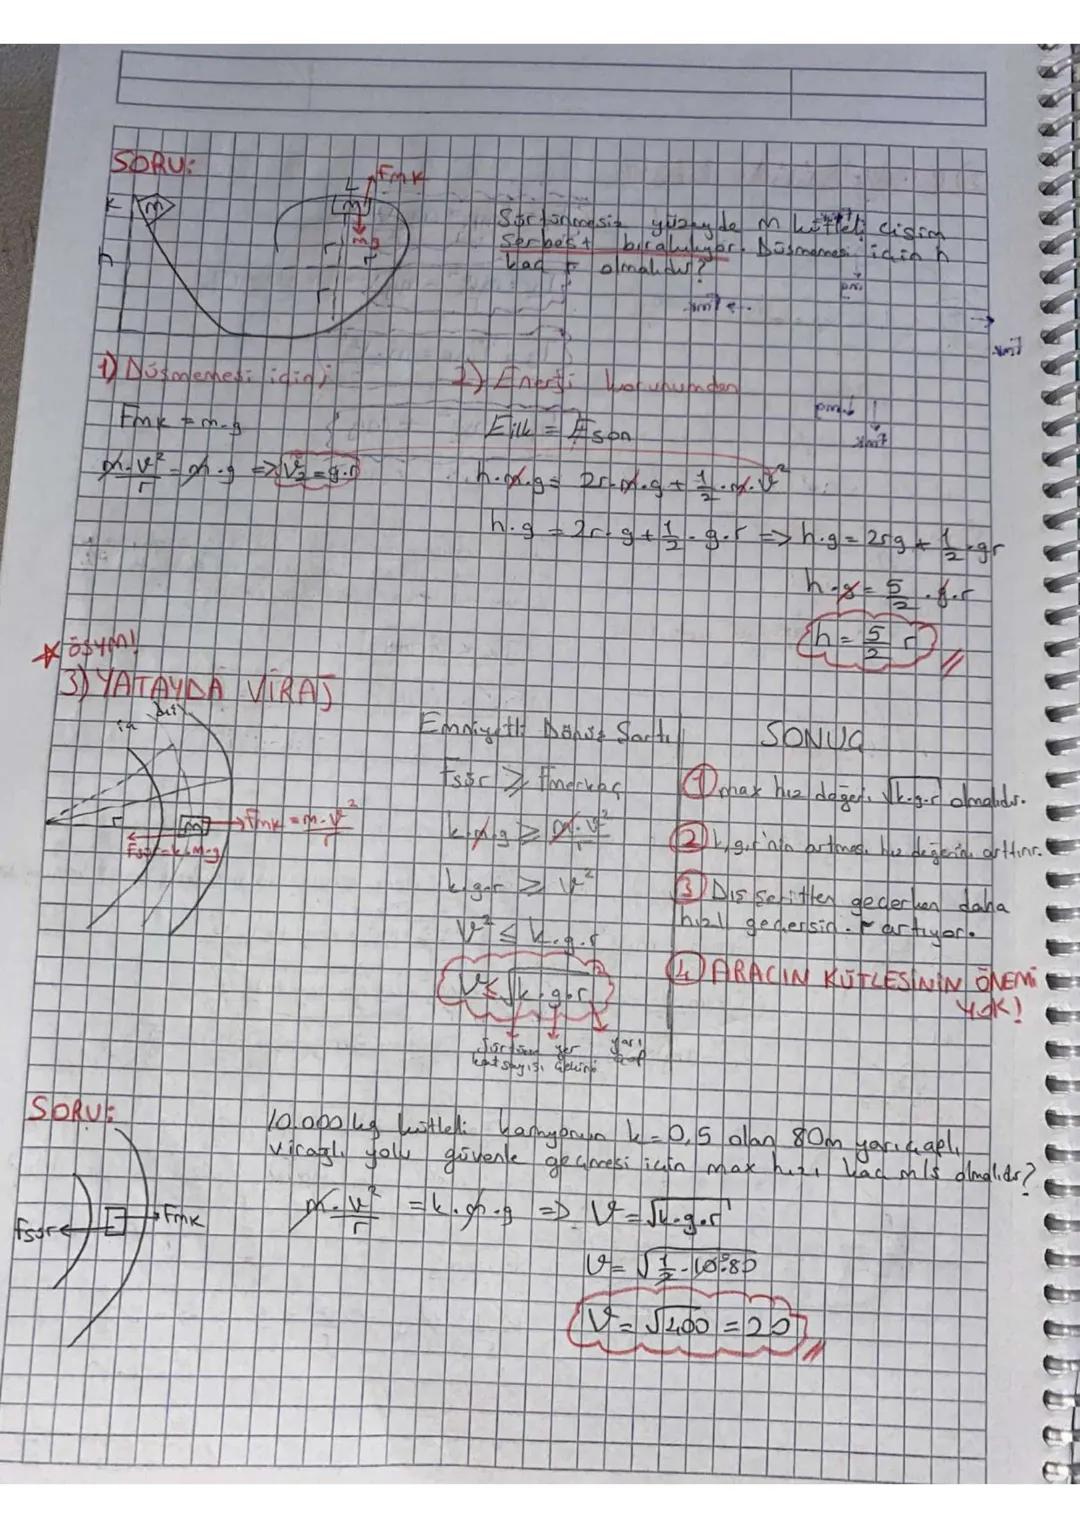 SORU:
K
m
L
Fmk
m
mg
h
r
r
r
Sürtünmesiz yüzeyde m kütleli cisim
serbest bırakılıyor. Düşmemesi için h
kaç r olmalıdır?
1) Düşmemesi için;
Fmk = m.g
m.v²/r = m.g => v² = g.r
2) Enerji korunumundan
Eilk = Eson
h.m.g = 2r.m.g + 1/2.m.v²
h.g = 2r.g + 1/2.g.r => h.g = 2rg + 1/2.gr
h.g = 5/2.g.r
h = 5/2 r
ÖSYM!
3) YATAYDA VİRAJ
iç
dış
r
m
Fmk = m.v²/r
Fsür = k.m.g
Emniyetli Dönüş Şartı
Fsür ≥ Fmerkaç
k.m.g ≥ m.v²/r
k.g.r ≥ v²
v² ≤ k.g.r
v ≤ √k.g.r
sürtünme katsayısı
yer çekimi
yarıçap
SONUÇ
1 max hız değeri √k.g.r olmalıdır.
2 k,g,r'nin artması hız değerini arttırır.
3 Dış şeritten geçerken daha
hızlı geçersin. r artıyor.
4 ARACIN KÜTLESİNİN ÖNEMİ
YOK!
SORU:
10.000 kg kütleli kamyonun k=0,5 olan 80m yarıçaplı
virajlı yolu güvenle geçmesi için max hızı kaç m/s olmalıdır?
Fsür
Fmk
m.v²/r = k.m.g => v = √k.g.r
v = √1/2.10.80
v = √400 = 20